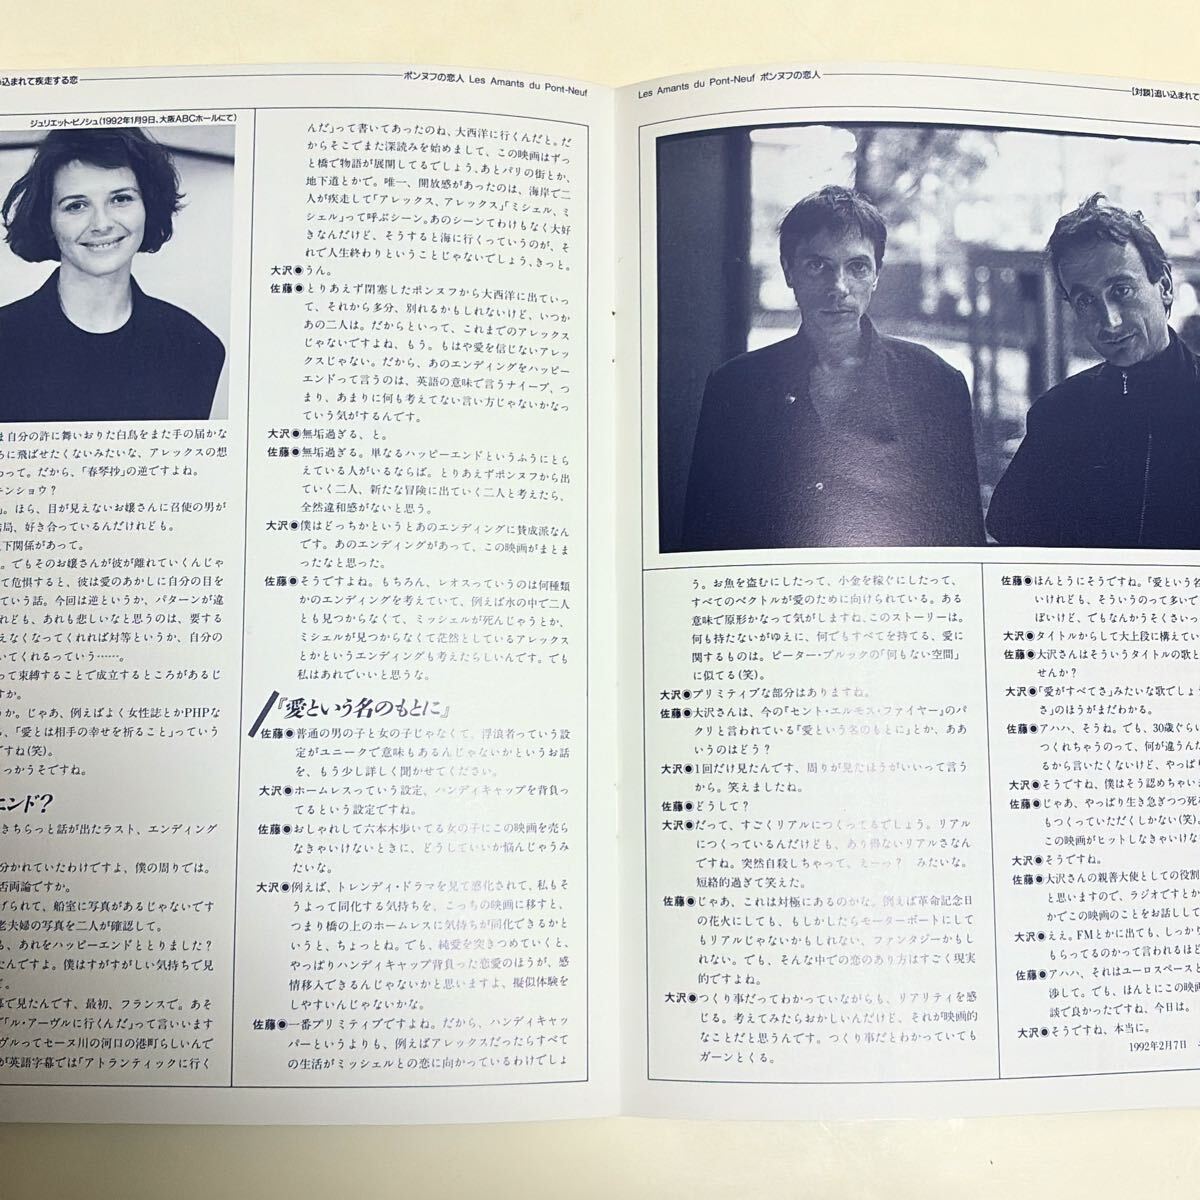 い込まれて疾走する恋
ポンヌフの恋人 Les Amants du Pont-Neuf
ジュリエット・ビノシュ(1992年1月9日、大阪ABCホールにて)
は自分の許に舞いおりた白鳥をまた手の届かな
ろに飛ばせたくないみたいな、アレックスの想
わって。だから、「春琴抄」の逆ですよね。
ンショウ?
」。ほら、目が見えないお嬢さんに召使の男が
結局、好き合っているんだけれども。
下関係があって。
。でもそのお嬢さんが彼が離れていくんじゃ
て危惧すると、彼は愛のあかしに自分の目を
ていう話。今回は逆というか、パターンが違
れども、あれも悲しいなと思うのは、要する
えなくなってくれれば対等というか、自分の
いてくれるっていう……。
って束縛することで成立するところがあるじ
すか。
うか。じゃあ、例えばよく女性誌とかPHPな
、「愛とは相手の幸せを祈ること」っていう
ですね(笑)。
っかうそですね。
エンド?
きちらっと話が出たラスト、エンディング
分かれていたわけですよ、僕の周りでは。
否両論ですか。
げられて、船室に写真があるじゃないです
老夫婦の写真を二人が確認して。
も、あれをハッピーエンドととりました?
たんですよ。僕はすがすがしい気持ちで見
幕で見たんです、最初、フランスで。あそ
で「ル・アーヴルに行くんだ」って言います
ヴルってセーヌ川の河口の港町らしいんで
が英語字幕では「アトランティックに行く
んだ」って書いてあったのね、大西洋に行くんだと。だ
からそこでまた深読みを始めまして、この映画はずっ
と橋で物語が展開してるでしょう、あとパリの街とか、
地下道とかで。唯一、開放感があったのは、海岸で二
人が疾走して「アレックス、アレックス」「ミシェル、ミ
シェル」って呼ぶシーン。あのシーンてわけもなく大好
きなんだけど、そうすると海に行くっていうのが、そ
れで人生終わりということじゃないでしょう、きっと。
大沢◉うん。
佐藤◉とりあえず閉塞したポンヌフから大西洋に出ていっ
て、それから多分、別れるかもしれないけど、いつか
あの二人は。だからといって、これまでのアレックス
じゃないですよね、もう。もはや愛を信じないアレッ
クスじゃない。だから、あのエンディングをハッピー
エンドって言うのは、英語の意味で言うナイーブ、つ
まり、あまりに何も考えてない言い方じゃないかなっ
ていう気がするんです。
大沢◉無垢過ぎる、と。
佐藤◉無垢過ぎる。単なるハッピーエンドというふうにとら
えている人がいるならば。とりあえずポンヌフから出
ていく二人、新たな冒険に出ていく二人と考えたら、
全然違和感がないと思う。
大沢◉僕はどっちかというとあのエンディングに賛成派なん
です。あのエンディングがあって、この映画がまとま
ったなと思った。
佐藤◉そうですよね。もちろん、レオスっていうのは何種類
かのエンディングを考えていて、例えば水の中で二人
とも見つからなくて、ミッシェルが死んじゃうとか、
ミシェルが見つからなくて茫然としているアレックス
とかというエンディングも考えたらしいんです。でも
私はあれでいいと思うな。
『愛という名のもとに』
佐藤◉普通の男の子と女の子じゃなくて、浮浪者っていう設
定がユニークで意味もあるんじゃないかというお話
を、もう少し詳しく聞かせてください。
大沢◉ホームレスっていう設定、ハンディキャップを背負っ
てるという設定ですね。
佐藤◉おしゃれして六本木歩いてる女の子にこの映画を売ら
なきゃいけないときに、どうしていいか悩んじゃうみ
たいな。
大沢◉例えば、トレンディ・ドラマを見て感化されて、私もそ
うよって同化する気持ちを、こっちの映画に移すと、
つまり橋の上のホームレスに気持ちが同化できるかと
いうと、ちょっとね。でも、純愛を突きつめていくと、
やっぱりハンディキャップ背負った恋愛のほうが、感
情移入できるんじゃないかと思いますよ、擬似体験を
しやすいんじゃないかな。
佐藤◉一番プリミティブですよね。だから、ハンディキャッ
パーというよりも、例えばアレックスだったらすべて
の生活がミッシェルとの恋に向かっているわけでしょ
Les Amants du Pont-Neuf ポンヌフの恋人
[対談]追い込まれて
う。お魚を盗むにしたって、小金を稼ぐにしたって、
すべてのベクトルが愛のために向けられている。ある
意味で原形かなって気がしますね、このストーリーは。
何も持たないがゆえに、何でもすべてを持てる、愛に
関するものは。ピーター・ブルックの「何もない空間」
に似てる(笑)。
大沢◉プリミティブな部分はありますね。
佐藤◉大沢さんは、今の「セント・エルモス・ファイヤー」のパ
クリと言われている『愛という名のもとに』とか、ああ
いうのはどう?
大沢◉1回だけ見たんです、周りが見たほうがいいって言う
から。笑えましたね。
佐藤◉どうして?
大沢◉だって、すごくリアルにつくってるでしょう。リアル
につくっているんだけども、あり得ないリアルさなん
ですね。突然自殺しちゃって、えーっ? みたいな。
短絡的過ぎて笑えた。
佐藤◉じゃあ、これは対極にあるのかな。例えば革命記念日
の花火にしても、もしかしたらモーターボートにして
もリアルじゃないかもしれない、ファンタジーかもし
れない。でも、そんな中での恋のあり方はすごく現実
的ですよね。
大沢◉つくり事だってわかっていながらも、リアリティを感
じる。考えてみたらおかしいんだけど、それが映画的
なことだと思うんです。つくり事だとわかっていても
ガーンとくる。
佐藤◉ほんとうにそうですね。『愛という名
いけれども、そういうのって多いで
ぽいけど、でもなんかうそくさいっ
大沢◉タイトルからして大上段に構えてい
佐藤◉大沢さんはそういうタイトルの歌と
せんか?
大沢◉「愛がすべてさ」みたいな歌でしょ
さ」のほうがまだわかる。
佐藤◉アハハ、そうね。でも、30歳ぐらい
つくれちゃうのって、何が違うんだ
るから言いたくないけど、やっぱり
大沢◉そうですね、僕はそう認めちゃい
佐藤◉じゃあ、やっぱり生き急ぎつつ死
もつくっていただくしかない(笑)。
この映画がヒットしなきゃいけな
大沢◉そうですね。
佐藤◉大沢さんの親善大使としての役割
と思いますので、ラジオですとか
かでこの映画のことをお話しして
大沢◉ええ。FMとかに出ても、しっかり
もらってるのかって言われるほど
佐藤◉アハハ、それはユーロスペースと
渉して。でも、ほんとにこの映画
談で良かったですね、今日は。
大沢◉そうですね、本当に。
1992年2月7日